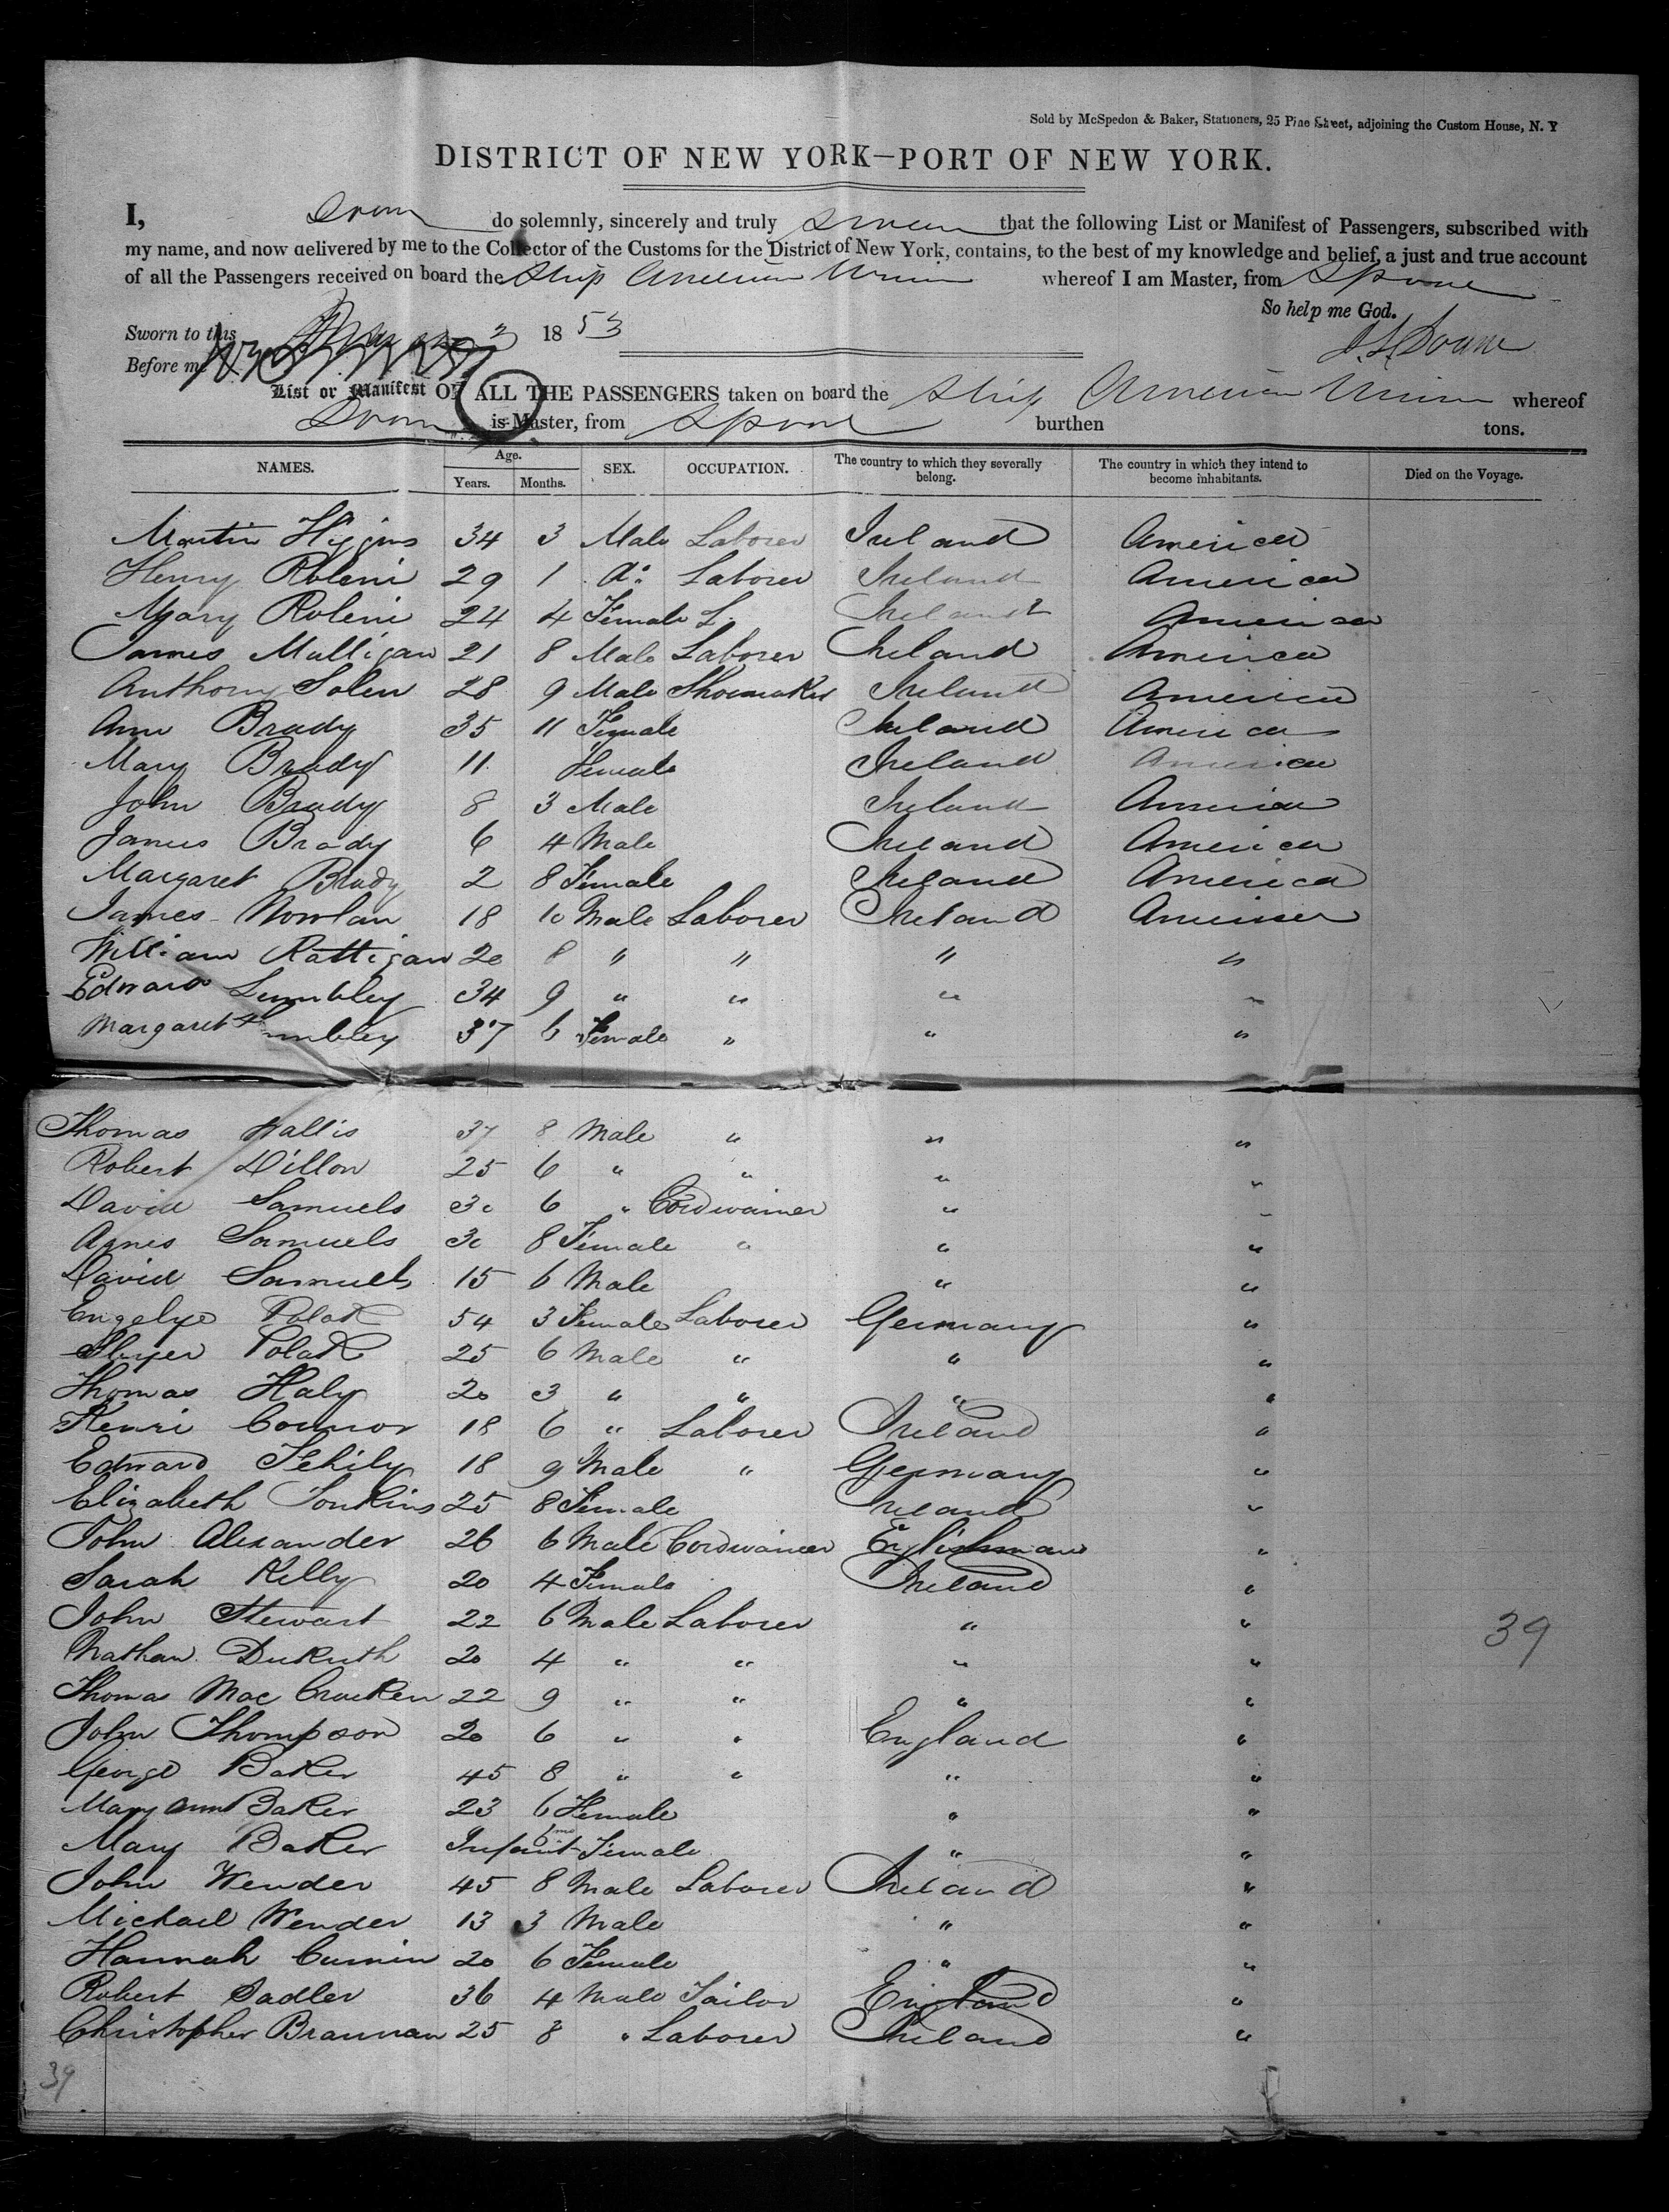 Sold by McSpedon & Baker, Stationers, 25 Pine Street, adjoining the Custom House, N. Y
DISTRICT OF NEW YORK—PORT OF NEW YORK.
I, do solemnly, sincerely and truly swear that the following List or Manifest of Passengers, subscribed with
my name, and now delivered by me to the Collector of the Customs for the District of New York, contains, to the best of my knowledge and belief, a just and true account
of all the Passengers received on board the Ship American Union whereof I am Master, from
So help me God.
Sworn to this 1853
Before me
List or Manifest OF ALL THE PASSENGERS taken on board the Ship American Union whereof
is Master, from burthen tons.
NAMES. Age. SEX. OCCUPATION. The country to which they severally belong. The country in which they intend to become inhabitants. Died on the Voyage.
Years. Months.
Martin Higgins 34 3 Male Laborer Ireland America
Henry 29 1 do Laborer Ireland America
Mary 24 4 Female L. Ireland America
James Mulligan 21 8 Male Laborer Ireland America
Anthony Solen 28 9 Male Shoemaker Ireland America
Ann Brady 35 11 Female Ireland America
Mary Brady 11 Female Ireland America
John Brady 8 3 Male Ireland America
James Brady 6 4 Male Ireland America
Margaret Brady 2 8 Female Ireland America
James Nowlan 18 10 Male Laborer Ireland America
William Rattigan 20 8 " " " "
Edward Lumbley 34 9 " " " "
Margaret Lumbley 37 6 Female " " "
Thomas Wallis 37 8 Male " " "
Robert Dillon 25 6 " " " "
David Samuels 30 6 " Cordwainer " "
Agnes Samuels 30 8 Female " " "
David Samuels 15 6 Male " "
Engelye Polak 54 3 Female Laborer Germany "
Polak 25 6 Male " " "
Thomas Haly 20 3 " " " "
Henri Connor 18 6 " Laborer Ireland "
Edward Fehily 18 9 Male " Germany "
Elizabeth Tonkins 25 8 Female Ireland "
John Alexander 26 6 Male Cordwainer Englishman "
Sarah Kelly 20 4 Female Ireland "
John Stewart 22 6 Male Laborer " "
39
Nathan 20 4 " " " "
Thomas Mac Cracken 22 9 " " " "
John Thompson 20 6 " " England "
George Baker 45 8 " " " "
Mary Ann Baker 23 6 Female " "
Mary Baker Infant 6 mo Female " "
John Wender 45 8 Male Laborer Ireland "
Michael Wender 13 3 Male " "
Hannah Cumin 20 6 Female " "
Robert Sadler 36 4 Male Tailor England "
Christopher Brannan 25 8 " Laborer Ireland "
39